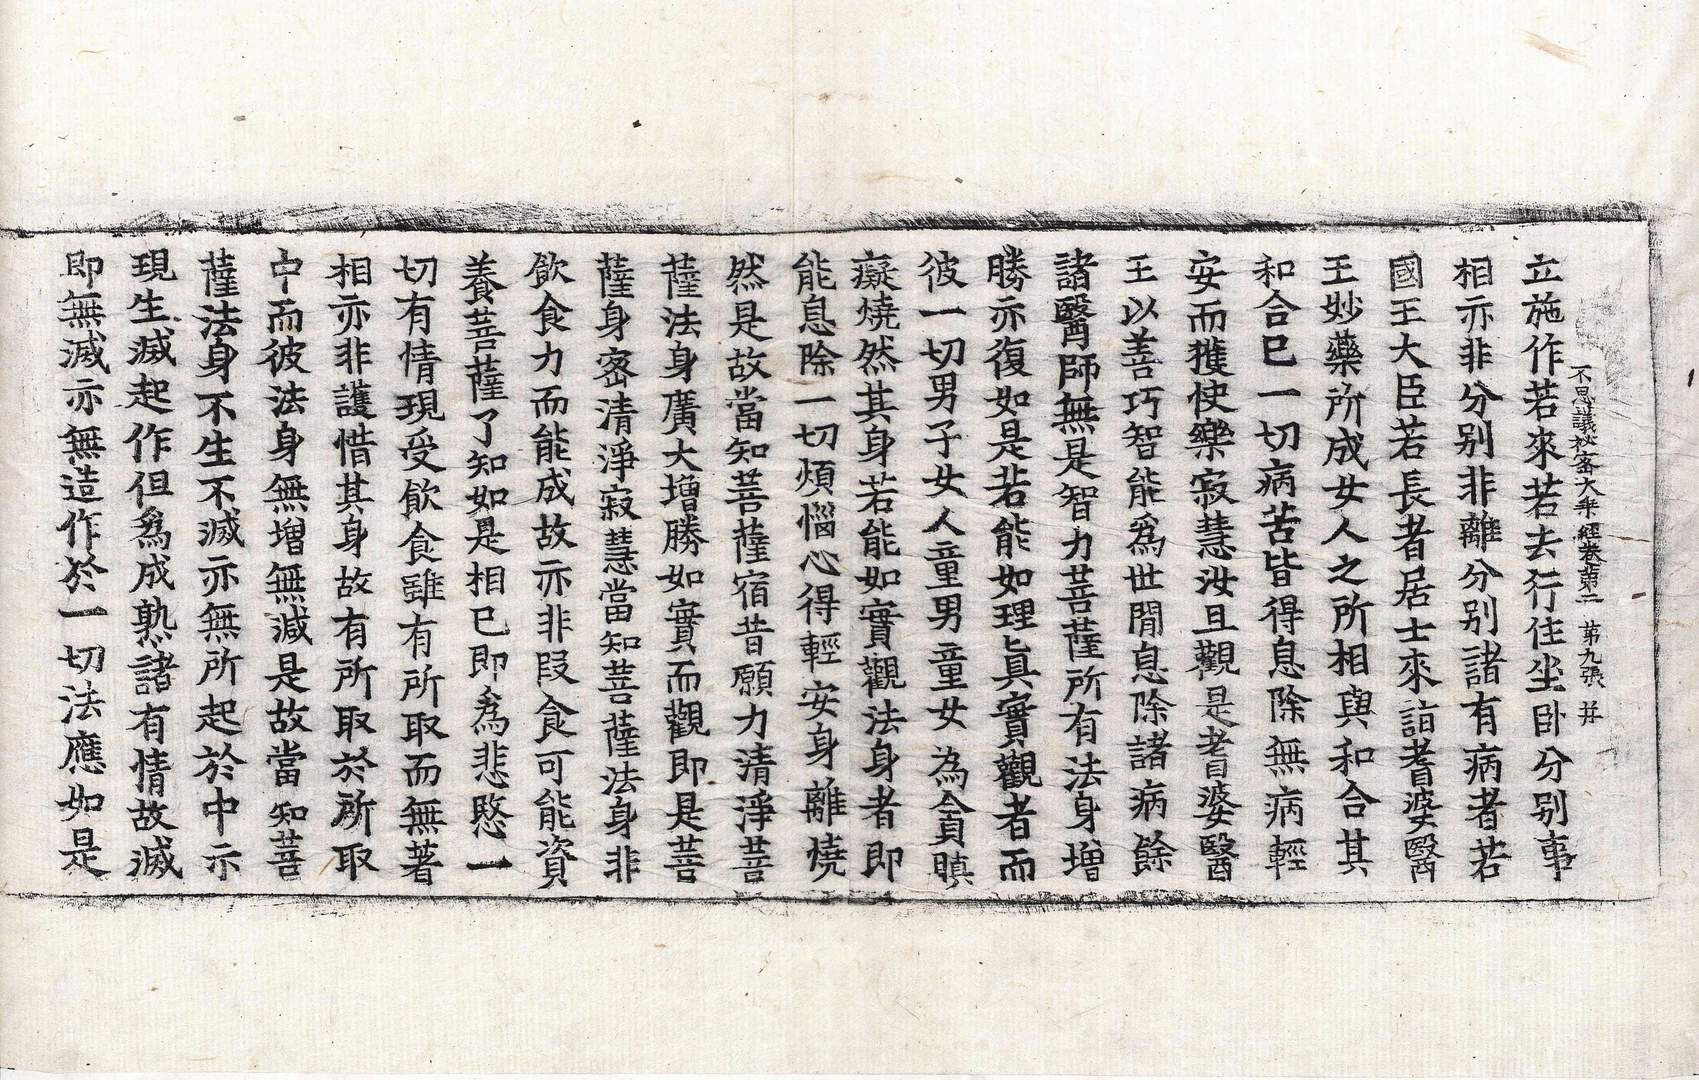 不思議秘密大乘經卷第二 第九張 并
立施作若來若去行住坐卧分别事
相亦非分别非離分别諸有病者若
國王大臣若長者居士來詣耆婆醫
王妙藥所成女人之所相與和合其
和合已一切病苦皆得息除無病輕
安而獲快樂寂慧汝且觀是耆婆醫
王以善巧智能爲世間息除諸病餘
諸醫師無是智力菩薩所有法身增
勝亦復如是若能如理真實觀者而
彼一切男子女人童男童女為貪瞋
癡燒然其身若能如實觀法身者即
能息除一切煩惱心得輕安身離燒
然是故當知菩薩宿昔願力清淨菩
薩法身廣大增勝如實而觀即是菩
薩身密清淨寂慧當知菩薩法身非
飲食力而能成故亦非叚食可能資
養菩薩了知如是相已即爲悲愍一
切有情現受飲食雖有所取而無著
相亦非護惜其身故有所取於所取
中而彼法身無增無減是故當知菩
薩法身不生不滅亦無所起於中示
現生滅起作但爲成熟諸有情故滅
即無滅亦無造作於一切法應如是